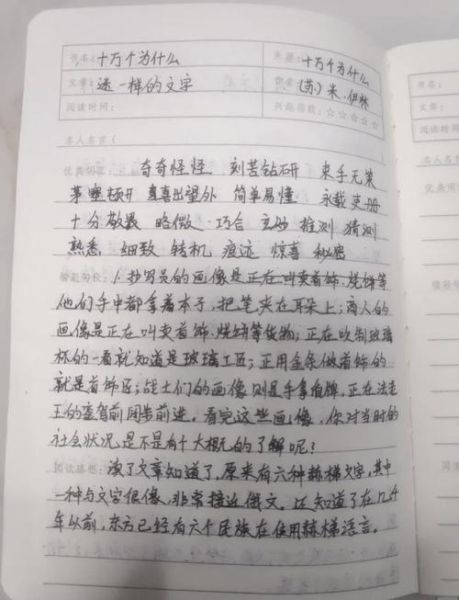 书名:十万个为什么 主题:十万个为什么
文章:迷一样的文字 作者:(苏)米·伊林
阅读时间: 兴趣指数:☆☆☆☆☆
名人名言(
优美词汇: 奇奇怪怪 刻苦钻研 束手无策
茅塞顿开 喜出望外 简单易懂 永载史册
十分敬畏 略微 巧合 玄妙 推测 猜测
熟悉 细致 转机 痕迹 惊喜 秘密
精彩句段:1.抄写员的画像是正在叫卖首饰,烧饼等
他们手中都拿着本子,把笔夹在耳朵上;商人的
画像是正在叫卖首饰,烧饼等货物;正在吹制玻璃
杯的一看就知道是玻璃工匠;正用金条做首饰的
就是首饰匠;战士们的画像则是手拿盾牌,正在法老
王的銮驾前阔步前进。看完这些画像,你对当时的
社会状况是不是有个大概的了解呢?
阅读感想:读了文章知道了,原来有六种赫梯文字,其中
一种与文字很像,非常接近俄文。还知道了在几千
年以前,东方已经有六个民族在使用赫梯语言。